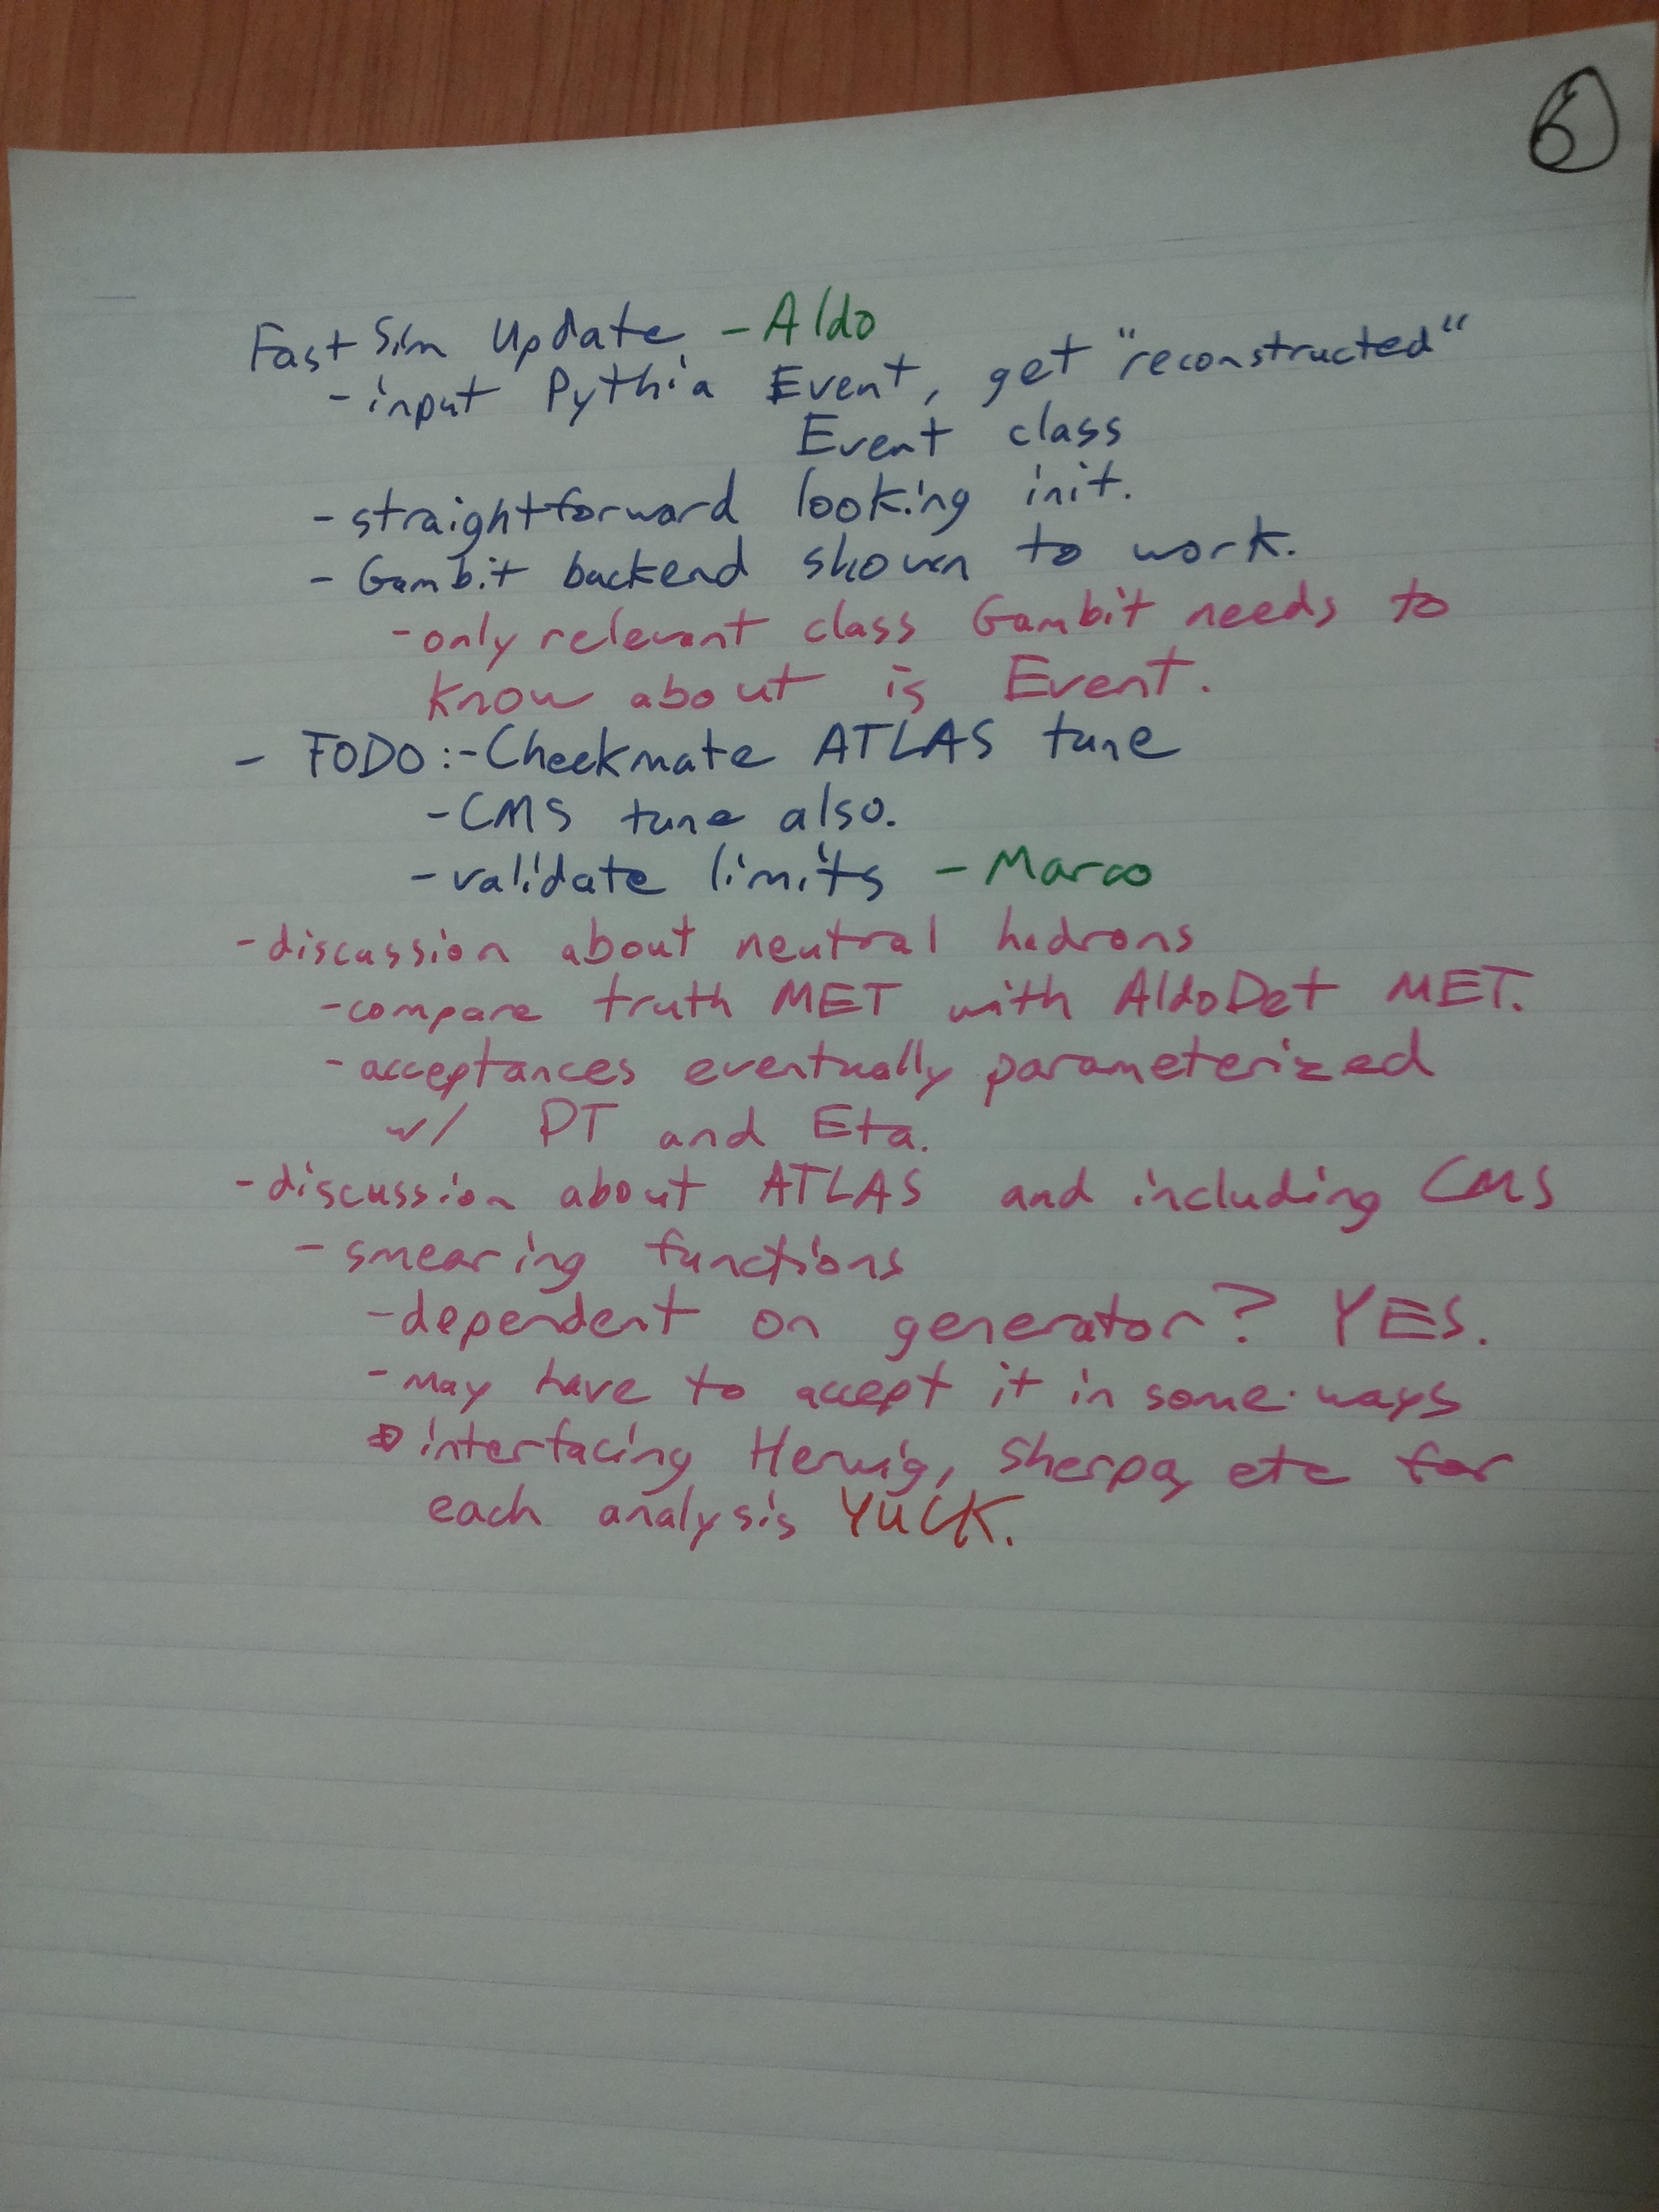 6
Fast Sim Update - Aldo
- input Pythia Event, get "reconstructed"
Event class
- straightforward looking init.
- Gambit backend shown to work.
- only relevant class Gambit needs to
know about is Event.
- TODO:- Checkmate ATLAS tune
- CMS tune also.
- validate limits - Marco
- discussion about neutral hadrons
- compare truth MET with AldoDet MET.
- acceptances eventually parameterized
w/ PT and Eta.
- discussion about ATLAS and including CMS
- smearing functions
- dependent on generator? YES.
- may have to accept it in some ways
⇒ interfacing Herwig, Sherpa, etc for
each analysis YUCK.